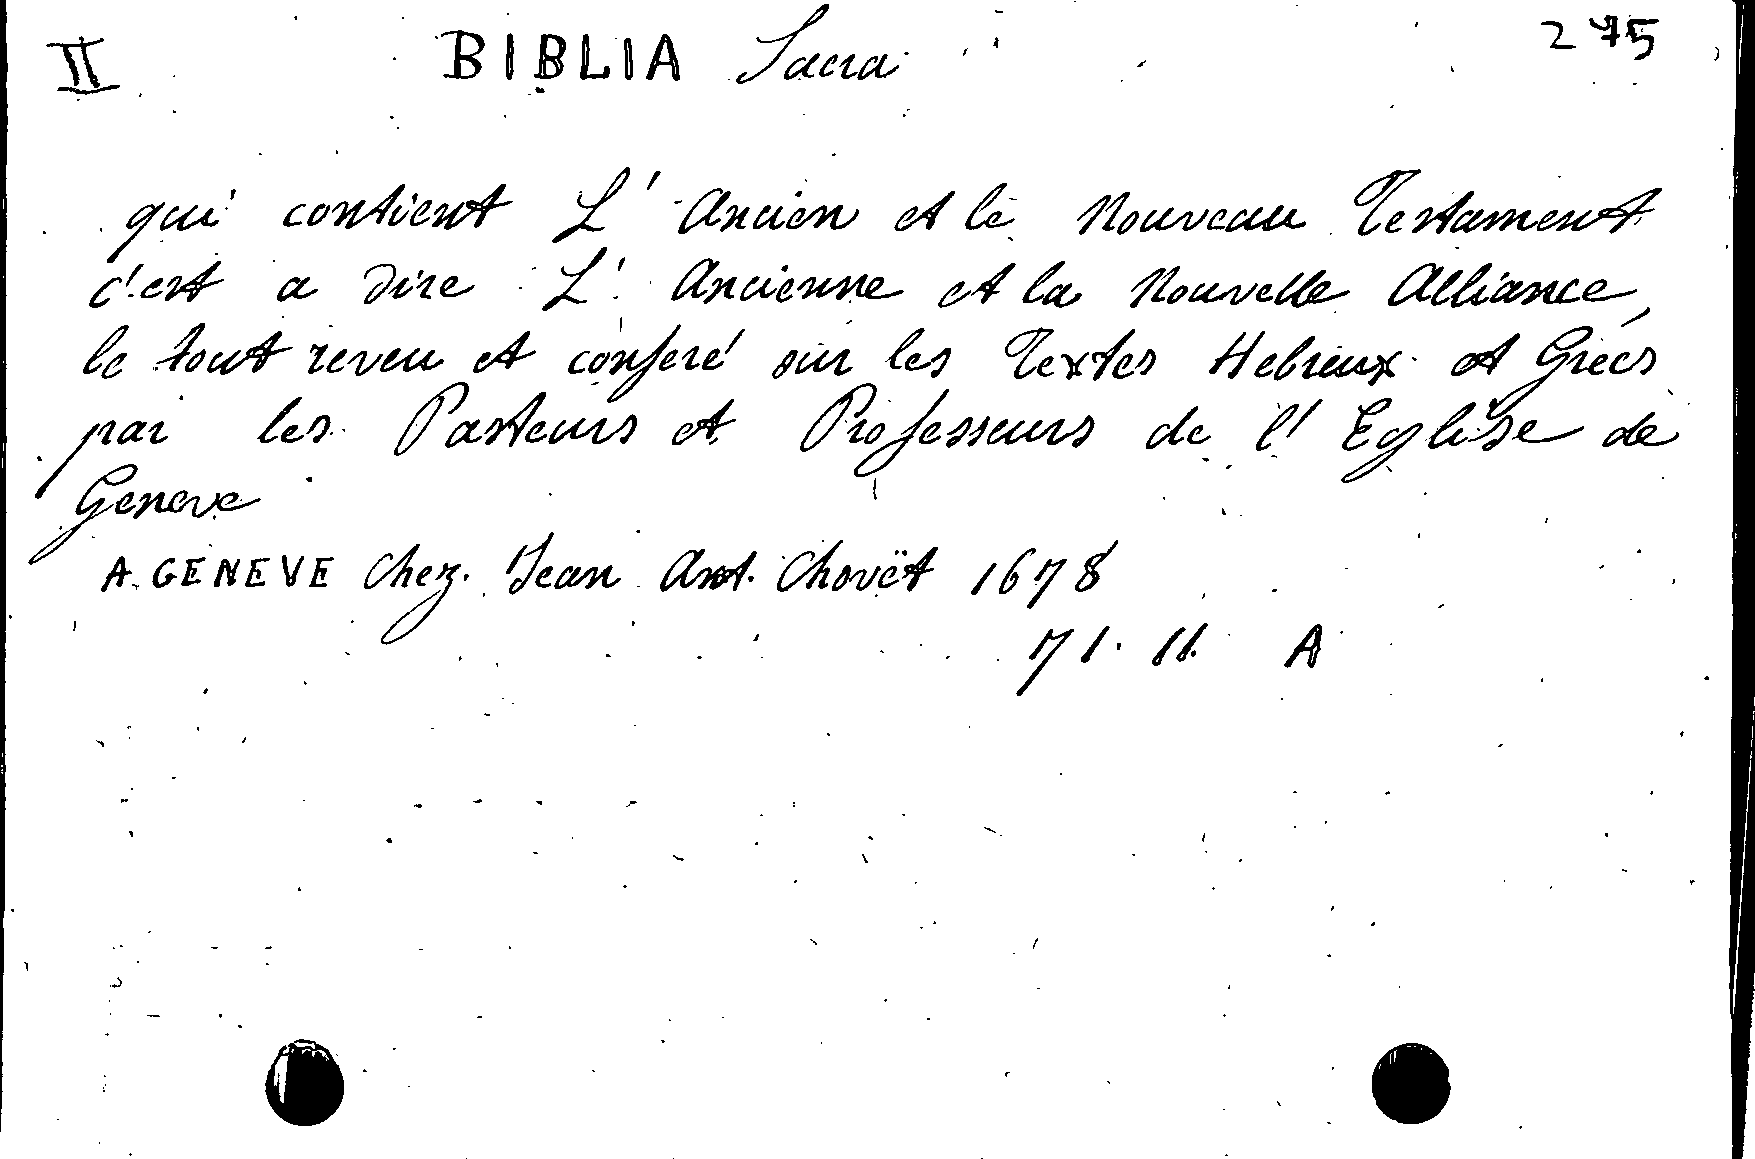 II BIBLIA Sacra 275
qui contient L' Ancien et le Nouveau Testament
c'est a dire L' Ancienne et la Nouvelle Alliance,
le tout reveu et conferé sur les Textes Hebreux et Grecs
par les Pasteurs et Professeurs de l' Eglise de
Geneve
A GENEVE Chez Jean Ant. Chovët 1678
71. 11. A